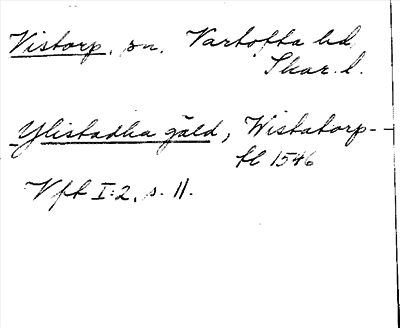 Vistorp, sn, Vartofta hd,
Skar. l.
Ylistadha gäld, Wistatorp--
tl 1546
Vft I:2, s. 11.